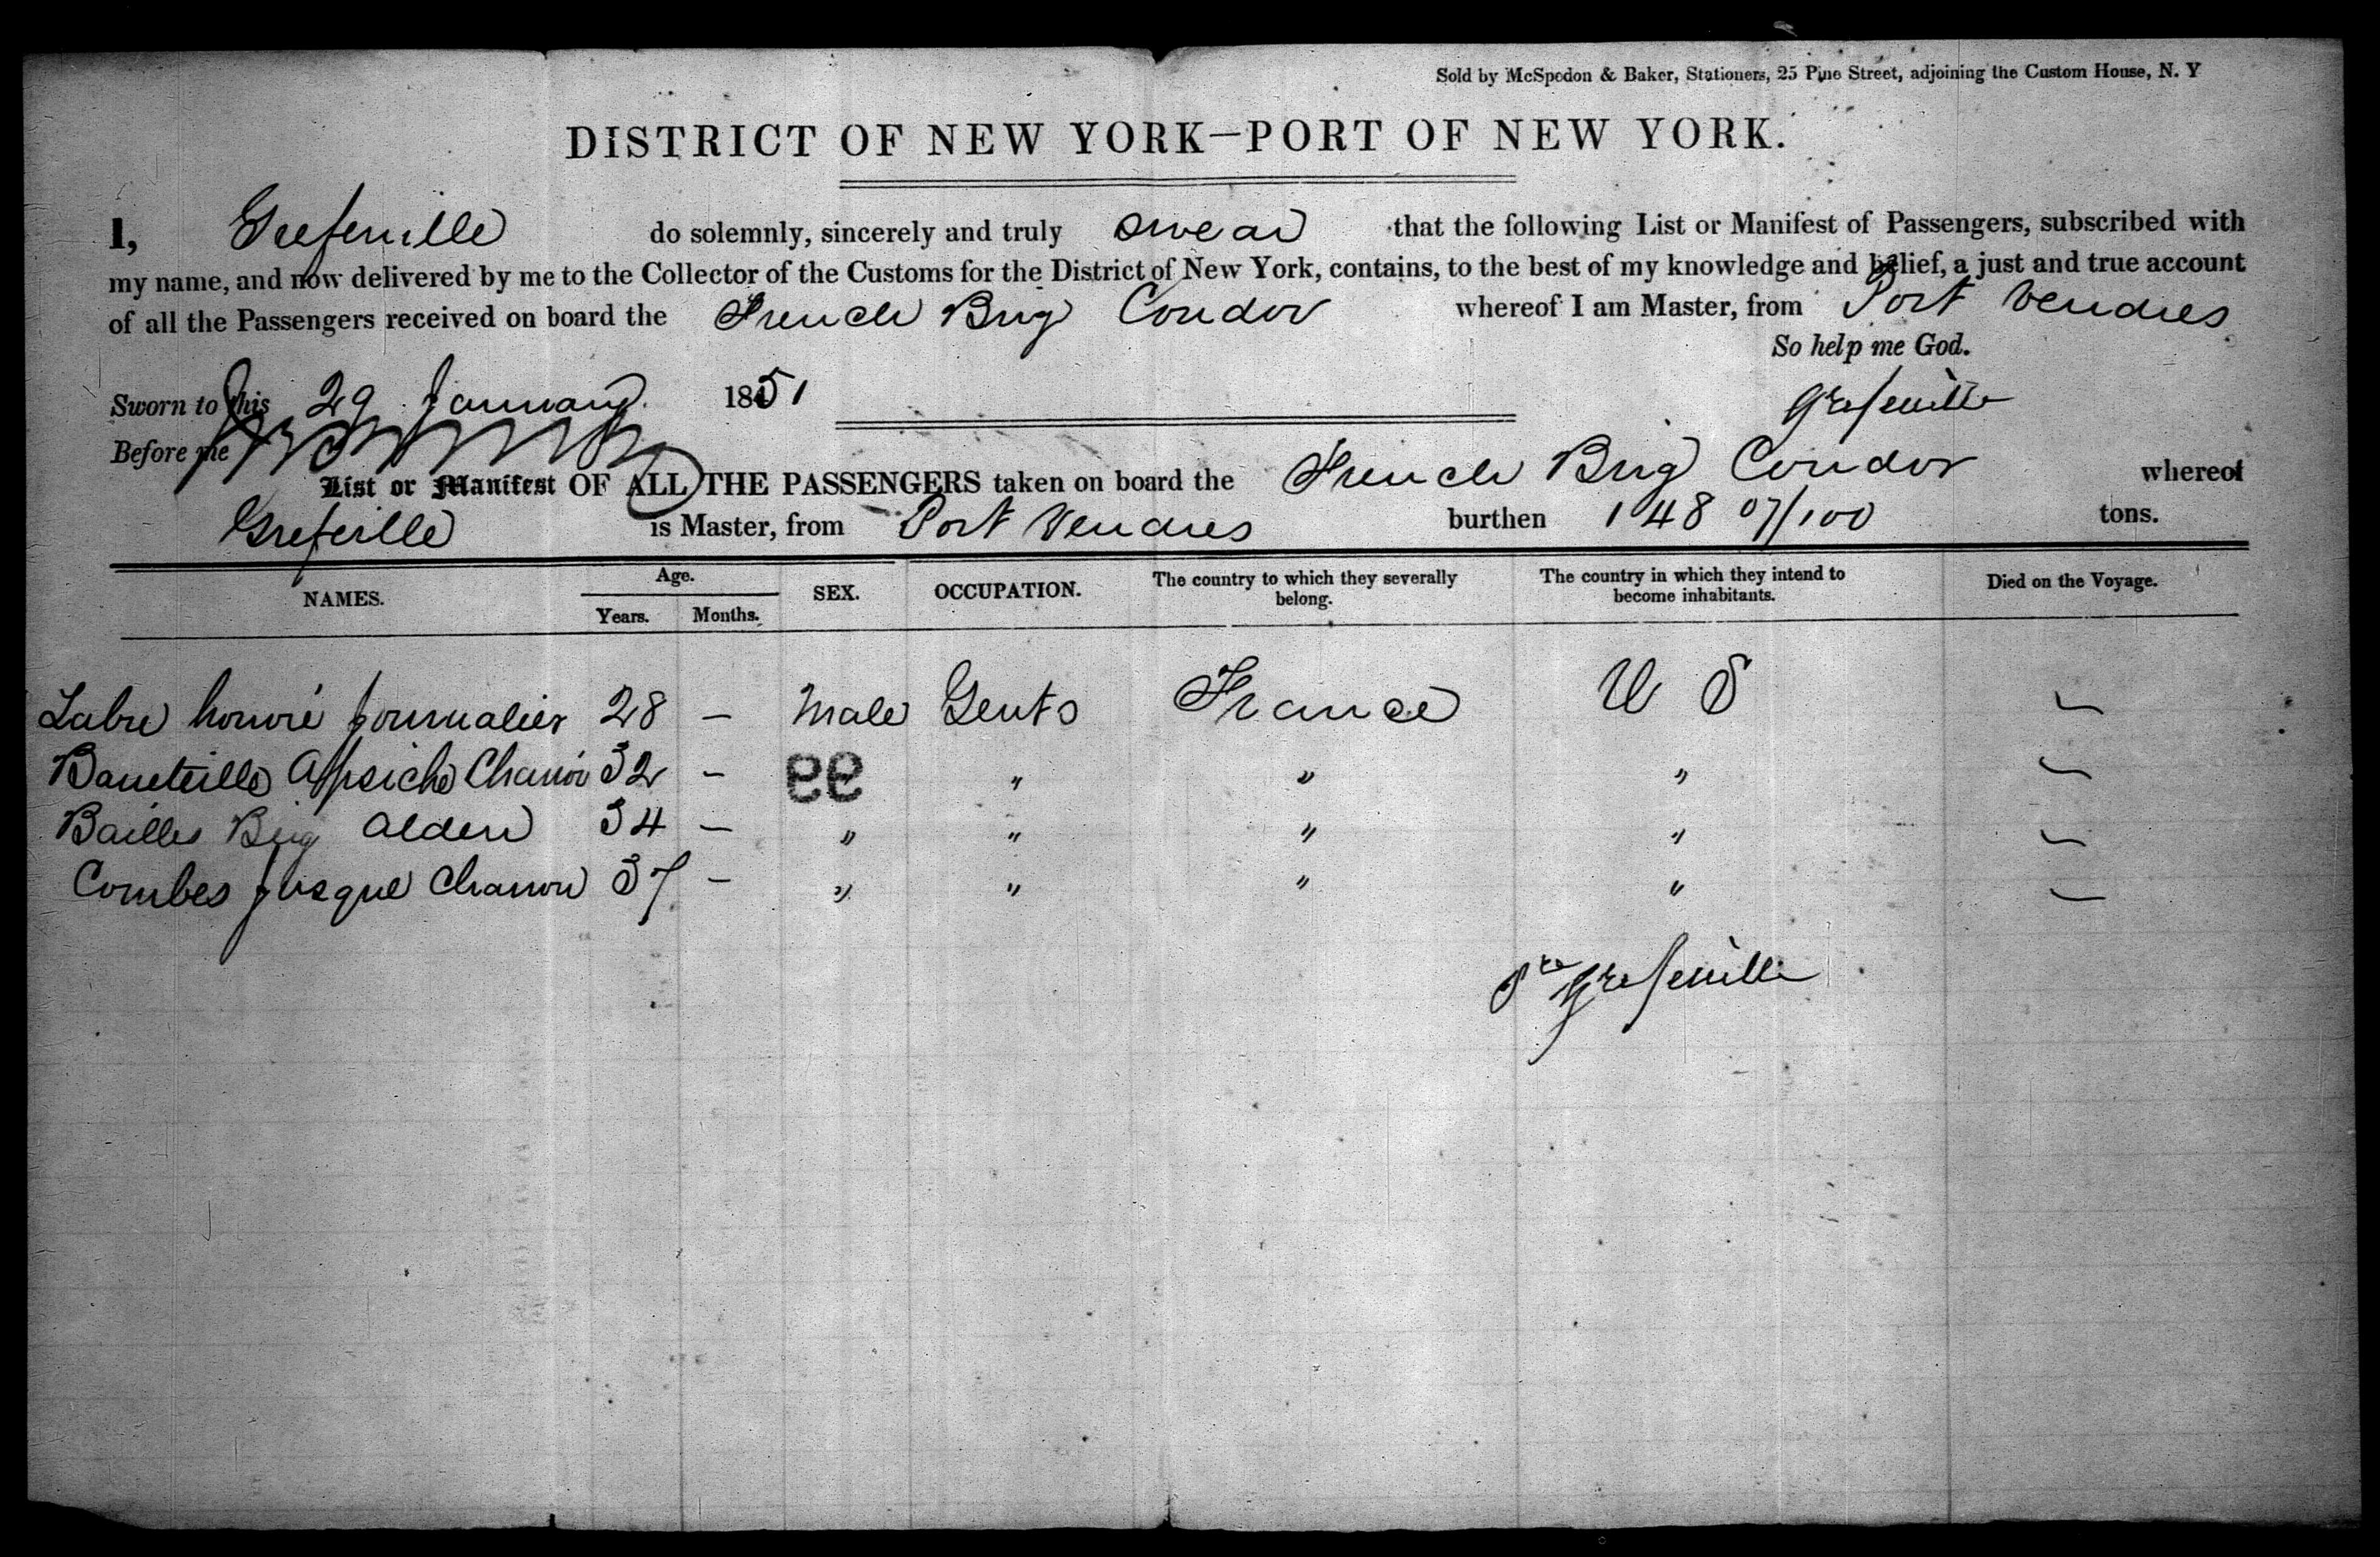 Sold by McSpedon & Baker, Stationers, 25 Pine Street, adjoining the Custom House, N. Y
DISTRICT OF NEW YORK—PORT OF NEW YORK.
I, Grefeuille do solemnly, sincerely and truly swear that the following List or Manifest of Passengers, subscribed with
my name, and now delivered by me to the Collector of the Customs for the District of New York, contains, to the best of my knowledge and belief, a just and true account
of all the Passengers received on board the French Brig Condor whereof I am Master, from Port Vendres
So help me God.
Sworn to this 29 January 1851
Grefeuille
Before me
List or Manifest OF ALL THE PASSENGERS taken on board the French Brig Condor whereof
Grefeille is Master, from Port Vendres burthen 148 07/100 tons.
NAMES. Age. Years. Months. SEX. OCCUPATION. The country to which they severally belong. The country in which they intend to become inhabitants. Died on the Voyage.
Labre honoré journalier 28 — Male Gents France U S —
Bauteille Chanoi 32 — 99 " " " —
Bailles Alden 34 — " " " " —
Combes Jusque Chanou 37 — " " " " —
Grefeuille